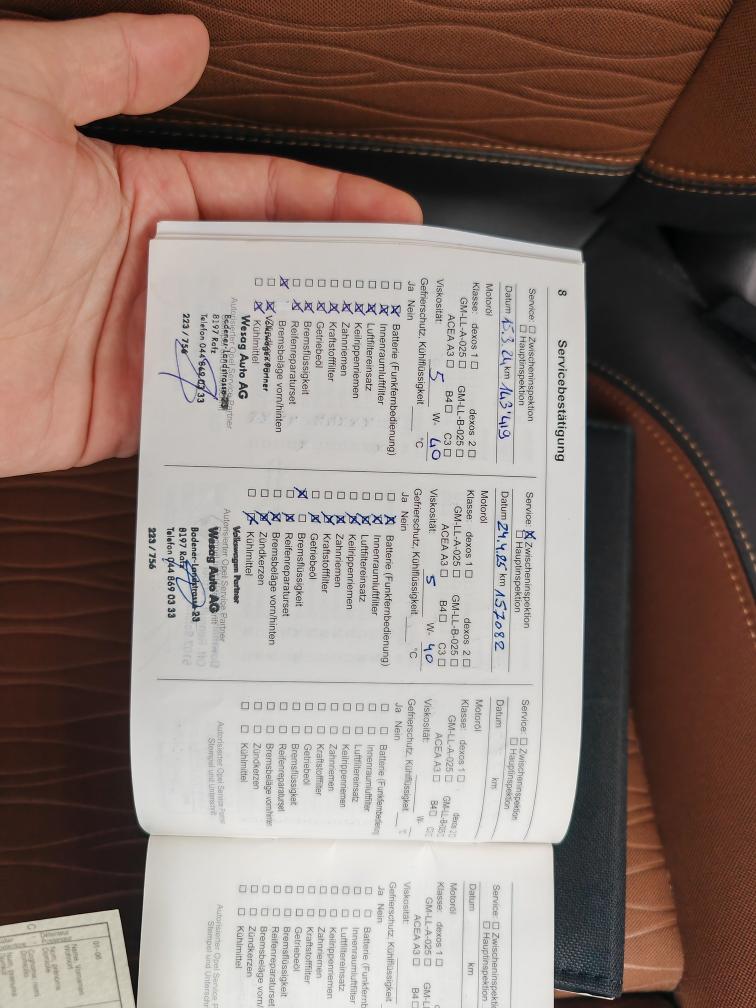 8 Servicebestätigung
Service: ☐ Zwischeninspektion
☐ Hauptinspektion
Datum 15.3.24 km 143'419
Motoröl
Klasse: dexos 1 ☐ dexos 2 ☐
GM-LL-A-025 ☐ GM-LL-B-025 ☐
ACEA A3 ☐ B4 ☐ C3 ☐
Viskosität: 5 W- 40
Gefrierschutz, Kühlflüssigkeit °C
Ja Nein
☐ ☒ Batterie (Funkfernbedienung)
☐ ☒ Innenraumluftfilter
☐ ☒ Luftfiltereinsatz
☐ ☒ Keilrippenriemen
☐ ☒ Zahnriemen
☐ ☒ Kraftstofffilter
☐ ☒ Getriebeöl
☐ ☒ Bremsflüssigkeit
☐ ☒ Reifenreparaturset
☒ ☐ Bremsbeläge vorn/hinten
☐ ☒
☐ ☒ Kühlmittel
Autorisierter Opel Service Partner
Wesag Auto AG
Badener-Landstrasse 23
8197 Rafz
Telefon 044 869 03 33
223 / 756
Service: ☒ Zwischeninspektion
☐ Hauptinspektion
Datum 24.4.25 km 157082
Motoröl
Klasse: dexos 1 ☐ dexos 2 ☐
GM-LL-A-025 ☐ GM-LL-B-025 ☐
ACEA A3 ☐ B4 ☐ C3 ☐
Viskosität: 5 W- 40
Gefrierschutz, Kühlflüssigkeit °C
Ja Nein
☐ ☒ Batterie (Funkfernbedienung)
☐ ☒ Innenraumluftfilter
☐ ☒ Luftfiltereinsatz
☐ ☒ Keilrippenriemen
☐ ☒ Zahnriemen
☐ ☒ Kraftstofffilter
☐ ☒ Getriebeöl
☒ ☐ Bremsflüssigkeit
☐ ☒ Reifenreparaturset
☐ ☒ Bremsbeläge vorn/hinten
☐ ☒ Zündkerzen
☐ ☒ Kühlmittel
Volkswagen Partner
Autorisierter Opel Service Partner
Wesag Auto AG
Badener-Landstrasse 23
8197 Rafz
Telefon 044 869 03 33
223 / 756
Service: ☐ Zwischeninspektion
☐ Hauptinspektion
Datum km
Motoröl
Klasse: dexos 1 ☐ dexos 2 ☐
GM-LL-A-025 ☐ GM-LL-B-025 ☐
ACEA A3 ☐ B4 ☐
Viskosität: W-
Gefrierschutz, Kühlflüssigkeit
Ja Nein
☐ ☐ Batterie
☐ ☐ Innenraumluftfilter
☐ ☐ Luftfiltereinsatz
☐ ☐ Keilrippenriemen
☐ ☐ Zahnriemen
☐ ☐ Kraftstofffilter
☐ ☐ Getriebeöl
☐ ☐ Bremsflüssigkeit
☐ ☐ Reifenreparaturset
☐ ☐ Bremsbeläge vorn/hinten
☐ ☐ Zündkerzen
☐ ☐ Kühlmittel
Autorisierter Opel Service Partner
Stempel und Unterschrift
Service: ☐ Zwischeninspektion
☐ Hauptinspektion
Datum km
Motoröl
Klasse: dexos 1 ☐
GM-LL-A-025 ☐
ACEA A3 ☐
Viskosität:
Gefrierschutz, Kühlflüssigkeit
Ja Nein
☐ ☐ Batterie
☐ ☐ Innenraumluftfilter
☐ ☐ Luftfiltereinsatz
☐ ☐ Keilrippenriemen
☐ ☐ Zahnriemen
☐ ☐ Kraftstofffilter
☐ ☐ Getriebeöl
☐ ☐ Bremsflüssigkeit
☐ ☐ Reifenreparaturset
☐ ☐ Bremsbeläge vorn/
☐ ☐ Zündkerzen
☐ ☐ Kühlmittel
Autorisierter Opel Service
Stempel und Unterschr
01-06
C
Name, Vorname